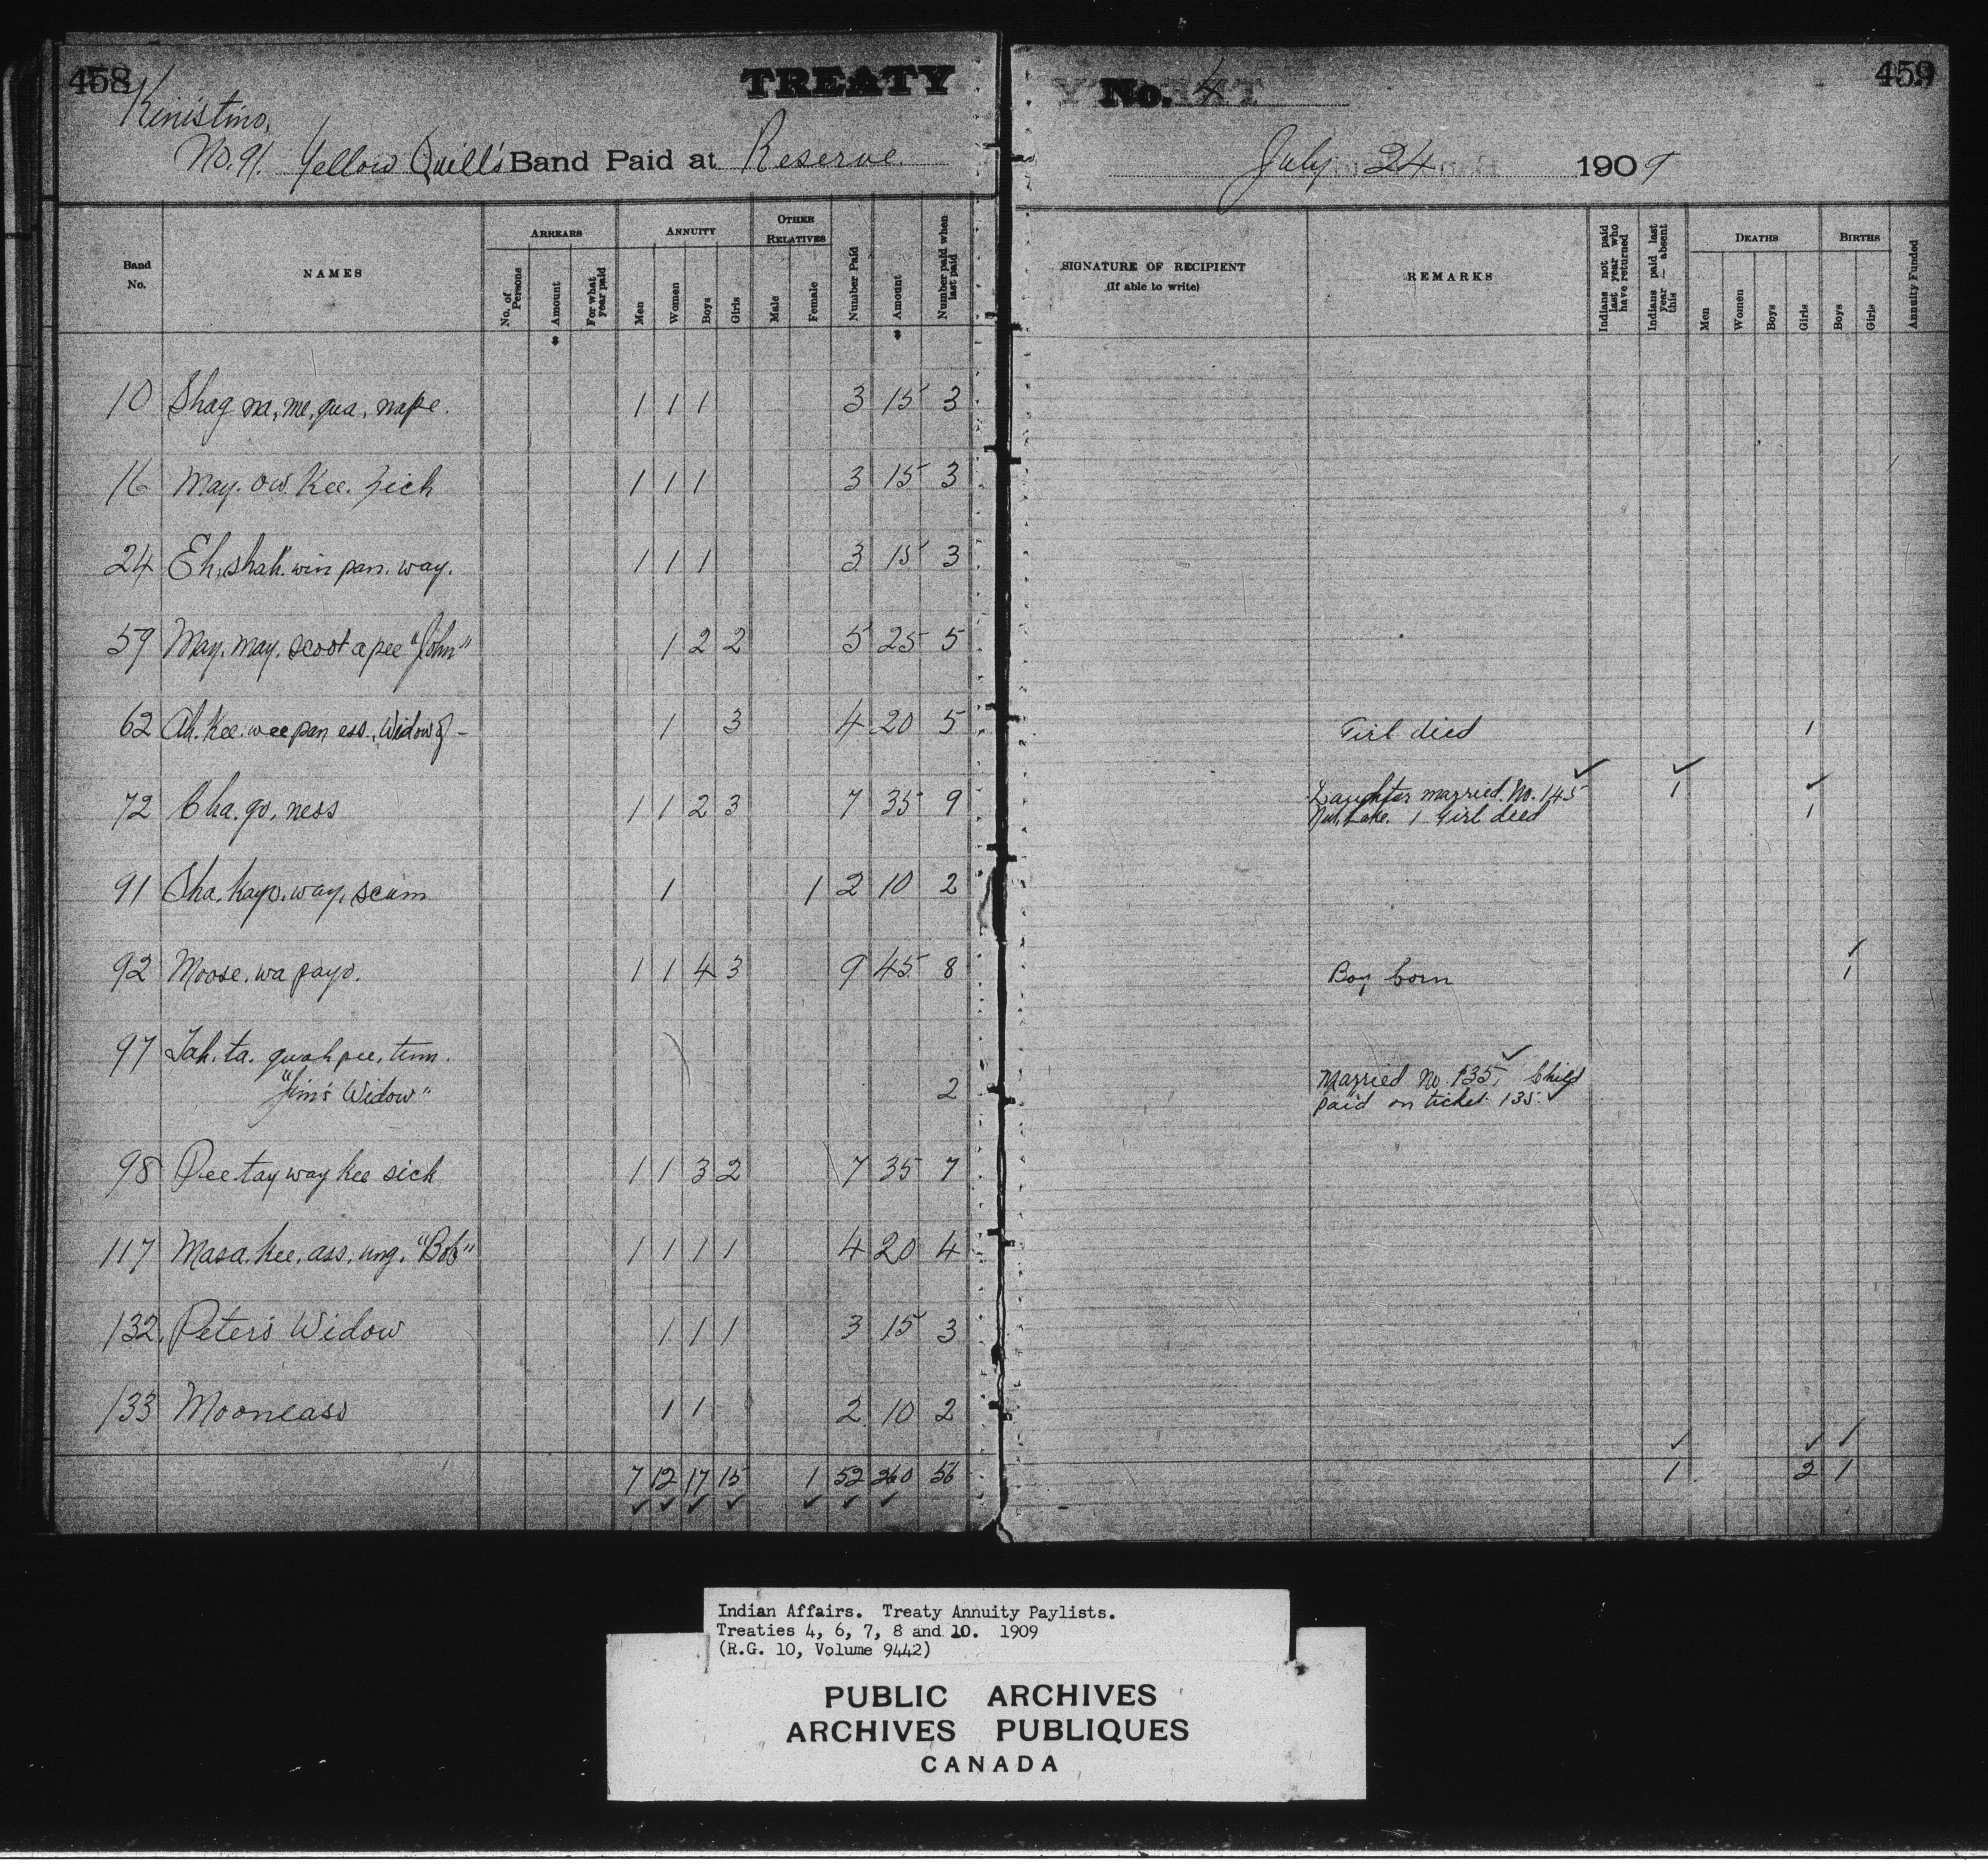 458
TREATY
Kinistino,
No. 91. Yellow Quill's Band Paid at Reserve
Band No.
NAMES
ARREARS
No. of Persons
Amount
For what year paid
ANNUITY
Men
Women
Boys
Girls
OTHER RELATIVES
Male
Female
Number Paid
$ Amount
Number paid when last paid
10 Shag na, me, qua, nape. 1 1 1 3 15 3
16 May. ow. Kee. zich 1 1 1 3 15 3
24 Eh, shak. win pan. way. 1 1 1 3 15 3
59 May. may. scoot a pee "John" 1 2 2 5 25 5
62 Ah. Kee. wee pan ess., Widow of - 1 3 4 20 5
72 Cha. go, ness 1 1 2 3 7 35 9
91 Sha. kayo. way. scum 1 1 2 10 2
92 Moose. wa payo. 1 1 4 3 9 45 8
97 Tah. ta. quah pee, tum.
"Jim's Widow" 2
98 Pee tay way kee sick 1 1 3 2 7 35 7
117 Masa. kee. ass. ung. "Bob" 1 1 1 1 4 20 4
132. Peter's Widow 1 1 1 3 15 3
133 Mooneass 1 1 2 10 2
7 12 17 15 1 52 260 56
No. 4
459
July 24 1909
SIGNATURE OF RECIPIENT
(If able to write)
REMARKS
Indians not paid last year who have returned
Indians paid last year — absent this
DEATHS
Men
Women
Boys
Girls
BIRTHS
Boys
Girls
Annuity Funded
Girl died 1
Daughter married No. 145 1
Nut Lake. 1 Girl died 1
Boy born 1
Married No. 135, Child
paid on ticket 135.
1 2 1
Indian Affairs. Treaty Annuity Paylists.
Treaties 4, 6, 7, 8 and 10. 1909
(R.G. 10, Volume 9442)
PUBLIC ARCHIVES
ARCHIVES PUBLIQUES
CANADA